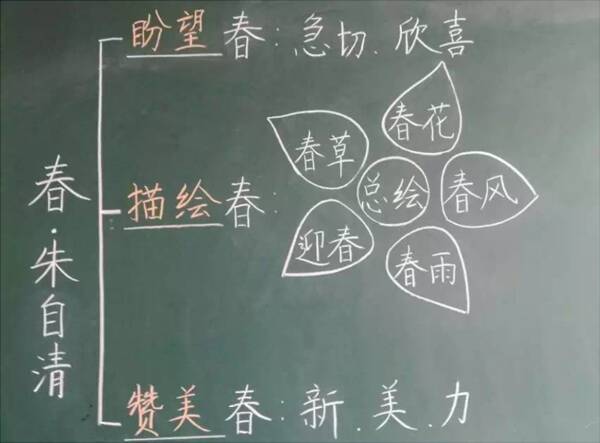 春·朱自清
盼望春：急切、欣喜
描绘春：
总绘
春草
春花
春风
春雨
迎春
赞美春：新、美、力